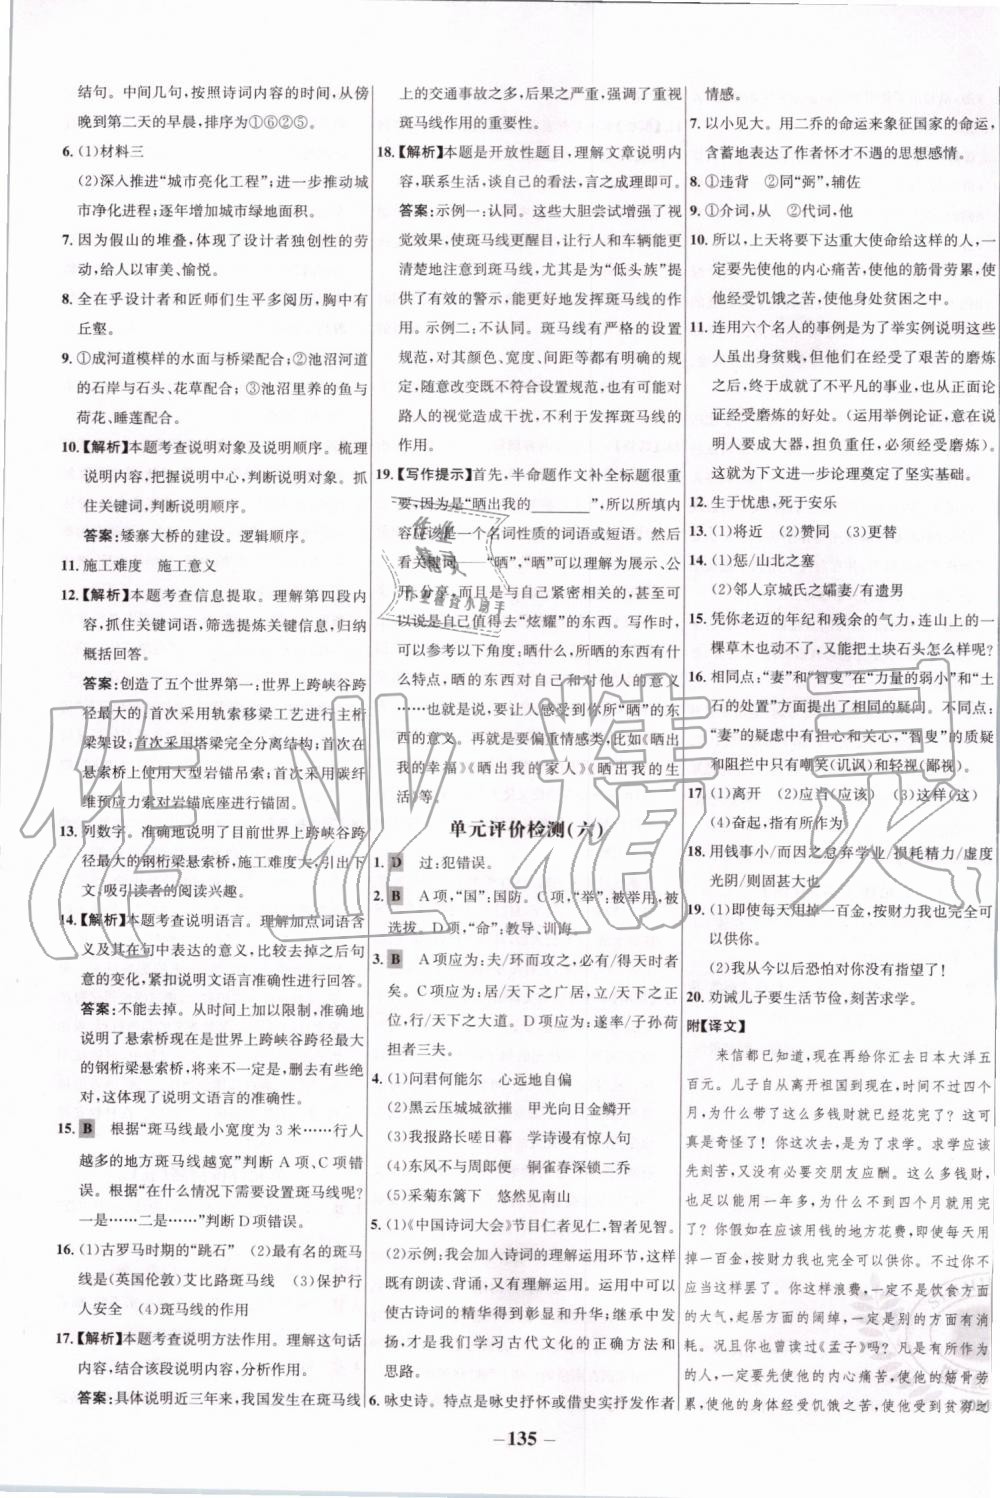 结句。中间几句，按照诗词内容的时间，从傍
晚到第二天的早晨，排序为①⑥②⑤。
6. (1)材料三
(2)深入推进“城市亮化工程”；进一步推动城
市净化进程；逐年增加城市绿地面积。
7. 因为假山的堆叠，体现了设计者独创性的劳
动，给人以审美、愉悦。
8. 全在乎设计者和匠师们生平多阅历，胸中有
丘壑。
9. ①成河道模样的水面与桥梁配合；②池沼河道
的石岸与石头、花草配合；③池沼里养的鱼与
荷花、睡莲配合。
10.【解析】本题考查说明对象及说明顺序。梳理
说明内容，把握说明中心，判断说明对象。抓
住关键词，判断说明顺序。
答案：矮寨大桥的建设。逻辑顺序。
11. 施工难度　施工意义
12.【解析】本题考查信息提取。理解第四段内
容，抓住关键词语，筛选提炼关键信息，归纳
概括回答。
答案：创造了五个世界第一：世界上跨峡谷跨
径最大的；首次采用轨索移梁工艺进行主桁
梁架设；首次采用塔梁完全分离结构；首次在
悬索桥上使用大型岩锚吊索；首次采用碳纤
维预应力索对岩锚底座进行锚固。
13. 列数字。准确地说明了世界上跨峡谷跨径
最大的钢桁梁悬索桥，施工难度大，引出下
文，吸引读者的阅读兴趣。
14.【解析】本题考查说明语言。理解加点词语含
义及其在句中表达的意义，比较去掉之后句
意的变化，紧扣说明文语言准确性进行回答。
答案：不能去掉。从时间上加以限制，准确地
说明了悬索桥现在是世界上跨峡谷跨径最大
的钢桁梁悬索桥，将来不一定是，删去有些绝
对，这体现了说明文语言的准确性。
15. B　根据“斑马线最小宽度为3米……行人
越多的地方斑马线越宽”判断A项、C项错
误。根据“在什么情况下需要设置斑马线呢？
一是……二是……”判断D项错误。
16. (1)古罗马时期的“跳石”　(2)最有名的斑马
线是(英国伦敦)艾比路斑马线　(3)保护行
人安全　(4)斑马线的作用
17.【解析】本题考查说明方法作用。理解这句话
内容，结合该段说明内容，分析作用。
答案：具体说明近三年来，我国发生在斑马线
上的交通事故之多，后果之严重，强调了重视
斑马线作用的重要性。
18.【解析】本题是开放性题目，理解文章说明内
容，联系生活，谈自己的看法，言之成理即可。
答案：示例一：认同。这些大胆尝试增强了视
觉效果，使斑马线更醒目，让行人和车辆能更
清楚地注意到斑马线，尤其是为“低头族”提供
了有效的警示，能更好地发挥斑马线的作
用。示例二：不认同。斑马线有严格的设置
规范，对颜色、宽度、间距等都有明确的规定，
随意改变既不符合设置规范，也有可能会对
路人的视觉造成干扰，不利于发挥斑马线的
作用。
19.【写作提示】首先，半命题作文补全标题很重
要，因为是“晒出我的________”，所以所填内
容应该是一个名词性质的词语或短语。然后
看关键词——“晒”，“晒”可以理解为展示、公
开、分享，而且是与自己紧密相关的，也可以
说是自己值得去“炫耀”的东西。写作时，可
以参考以下角度：晒什么，所晒的东西有什
么特点，晒的东西对自己和对他人的意义
……也就是说，要让人感受到你所“晒”的东
西的意义。再就是要偏重情感类，比如《晒出我
的幸福》《晒出我的家人》《晒出我的生
活》等。
单元评价检测(六)
1. D　过：犯错误。
2. B　A项，“国”：国防。C项，“举”：被举用，被
选拔。D项，“命”：教导、训诲。
3. B　A项应为：夫/环而攻之，必有/得天时者
矣。C项应为：居/天下之广居，立/天下之正
位，行/天下之大道。D项应为：遂率/子孙荷
担者三夫。
4. (1)问君何能尔　心远地自偏
(2)黑云压城城欲摧　甲光向日金鳞开
(3)我报路长嗟日暮　学诗谩有惊人句
(4)东风不与周郎便　铜雀春深锁二乔
(5)采菊东篱下　悠然见南山
5. (1)《中国诗词大会》节目仁者见仁，智者见智。
(2)示例：我会加入诗词的理解运用环节，这样
既有朗读、背诵，又有理解运用。运用中可以
使古诗词的精华得到彰显和升华；继承中发
扬，才是我们学习古代文化的正确方法和
思路。
6. 咏史诗。特点是咏史抒怀或借史实抒发作者
情感。
7. 以小见大。用二乔的命运来象征国家的命运，
含蓄地表达了作者怀才不遇的思想感情。
8. ①违背　②同“弼”，辅佐
9. ①介词，从　②代词，他
10. 所以，上天将要下达重大使命给这样的人，一
定要先使他的内心痛苦，使他的筋骨劳累，使
他经受饥饿之苦，使他身处贫困之中。
11. 连用六个名人的事例是为了举实例说明这些
人虽出身贫贱，但他们在经受了艰苦的磨炼
之后，终于成就了不平凡的事业，也从正面论
证经受磨炼的好处。（运用举例论证，意在说
明人要成大器，担负重任，必须经受磨炼）。
这就为下文进一步论理奠定了坚实基础。
12. 生于忧患，死于安乐
13. (1)将近　(2)赞同　(3)更替
14. (1)惩/山北之塞
(2)邻人京城氏之孀妻/有遗男
15. 凭你老迈的年纪和残余的气力，连山上的一
棵草木也动不了，又能把土块石头怎么样呢？
16. 相同点：“妻”和“智叟”在“力量的弱小”和“土
石的处置”方面提出了相同的疑问。不同点：
“妻”的疑虑中有担心和关心，“智叟”的质疑
和阻拦中只有嘲笑(讥讽)和轻视(鄙视)。
17. (1)离开　(2)应当(应该)　(3)这样(这)
(4)奋起，指有所作为
18. 用钱事小/而因之怠弃学业/损耗精力/虚度
光阴/则固甚大也
19. (1)即使每天用掉一百金，按财力我也完全可
以供你。
(2)我从今以后恐怕对你没有指望了！
20. 劝诫儿子要生活节俭，刻苦求学。
附【译文】
来信都已知道，现在再给你汇去日本大洋五
百元。儿子自从离开祖国到现在，时间不过四个
月，为什么带了这么多钱财就已经花完了？这可
真是奇怪了！你这次去，是为了求学。求学应该
先刻苦，又没有必要交朋友应酬。这么多钱财，
也足以能用一年多，为什么不到四个月就用完
了？你假如在应该用钱的地方花费，即使每天用
掉一百金，按财力我也完全可以供你。不过不
应当这样罢了！你这样浪费，一定不是饮食方面
的大气，起居方面的阔绰，一定在别的方面有消
耗。况且你也曾读过《孟子》吗？凡是有所作为
的人，一定要先使他的内心痛苦，使他的筋骨劳
累，使他的身体经受饥饿之苦，使他受到贫穷之
－135－
作业精灵